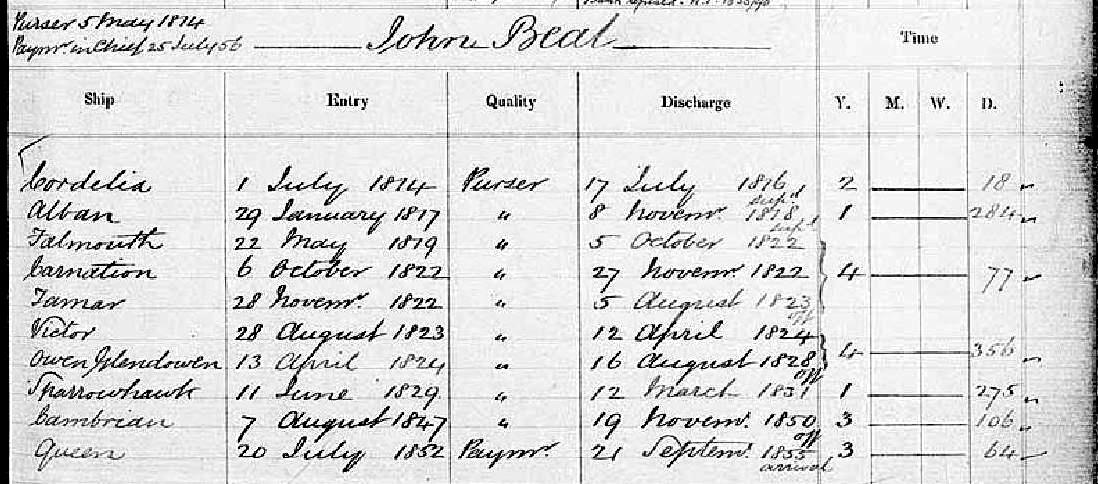 Purser 5 May 1814
Paymr. in Chief 25 July 56 John Beal Time
Ship Entry Quality Discharge Y. M. W. D.
Cordelia 1 July 1814 Purser 17 July 1816 2 18
Alban 29 January 1817 " 8 Novemr. 1818 1 284
Falmouth 22 May 1819 " 5 October 1822
Carnation 6 October 1822 " 27 Novemr. 1822 4 77
Tamar 28 Novemr. 1822 " 5 August 1823
Victor 28 August 1823 " 12 April 1824
Owen Glendowen 13 April 1824 " 16 August 1828 4 356
Sparrowhawk 11 June 1829 " 12 March 1831 1 275
Cambrian 7 August 1847 " 19 Novemr. 1850 3 106
Queen 20 July 1852 Paymr. 21 Septemr. 1855 3 64
arrival